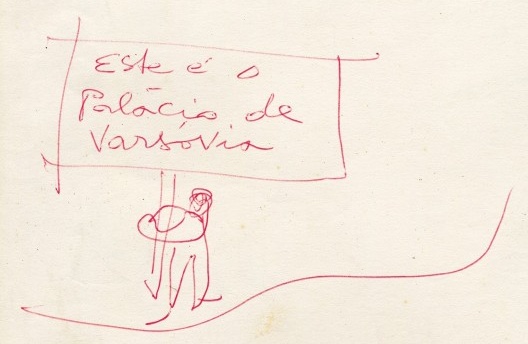 Este é o
Palácio de
Varsóvia